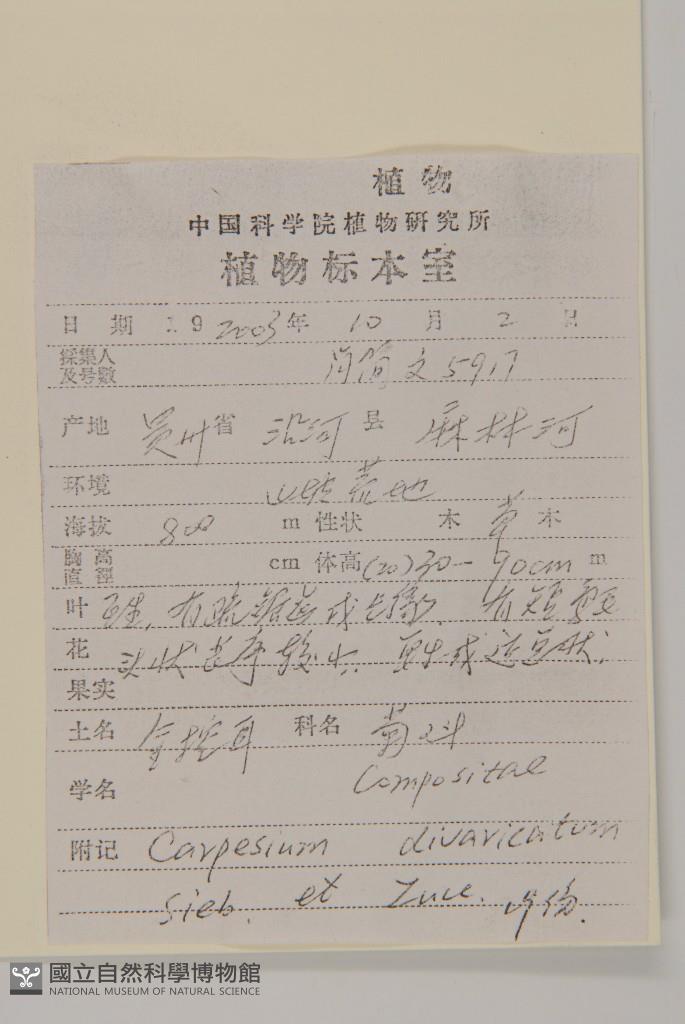 植物
中国科学院植物研究所
植物标本室
日期 19 2003年 10 月 2 日
採集人及号数 简文 5917
产地 贵州省 沿河县 麻林河
环境 山坡荒地
海拔 800 m 性状 木 草 木
胸高直徑 cm 体高(20)30-90cm m
叶 互生,有疏锯齿或
花 头状花序较小,
果实
土名 金挖耳 科名 菊科
学名 Compositae
附记 Carpesium divaricatum
Sieb. et Zucc.
國立自然科學博物館
NATIONAL MUSEUM OF NATURAL SCIENCE